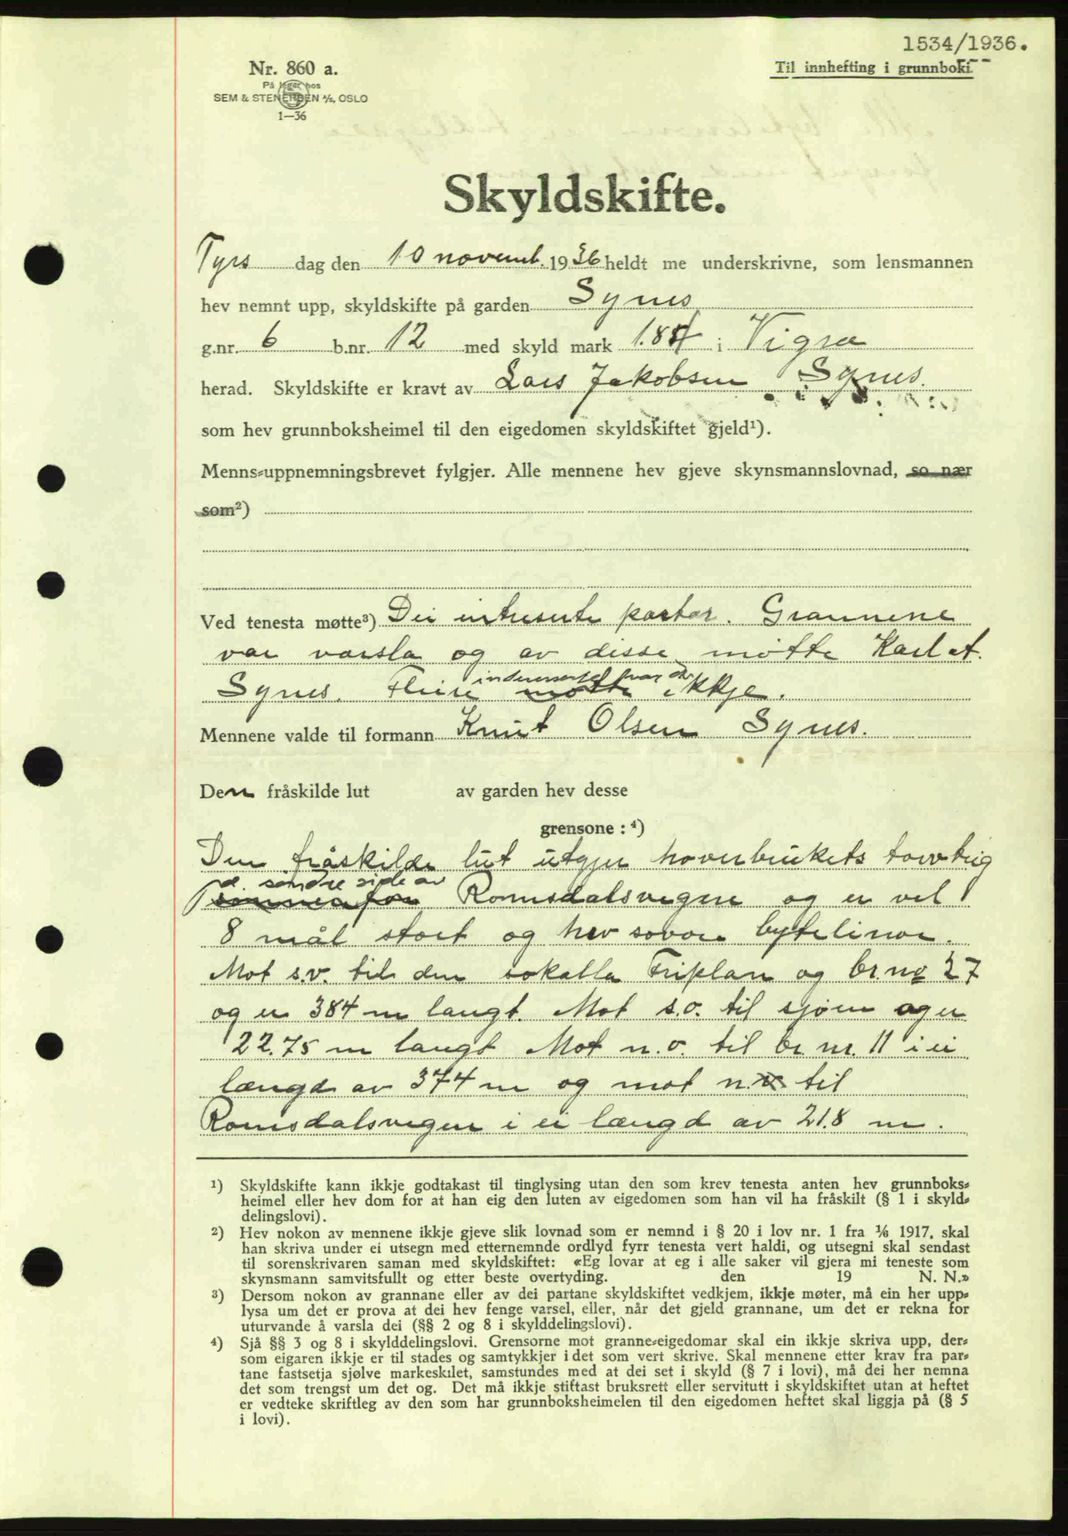 1534/1936.
Nr. 860 a.
Til innhefting i grunnboki
På lager hos
SEM & STENERSEN A/S, OSLO
1—36
Skyldskifte.
Tyrs dag den 10 novemb. 1936 heldt me underskrivne, som lensmannen
hev nemnt upp, skyldskifte på garden Synes
g.nr. 6 b.nr. 12 med skyld mark 1.84 i Vigra
herad. Skyldskifte er kravt av Lars Jakobsen Synes.
som hev grunnboksheimel til den eigedomen skyldskiftet gjeld¹).
Menns-uppnemningsbrevet fylgjer. Alle mennene hev gjeve skynsmannslovnad, so nær
som²)
Ved tenesta møtte³) Dei intreserte partar. Grannene
var varsla og av disse møtte Karl A.
Synes. Fleire møtte ikkje.
Mennene valde til formann Knut Olsen Synes.
Den fråskilde lut av garden hev desse
grensone : ⁴)
Den fråskilde lut utgjer hovedbrukets torvteig
på søndre side av
Romsdalsvegen og er vel
8 mål stort og hev sovore bytelinor.
Mot s.v. til den sokalla Friplan og br.no 27
og er 384 m langt. Mot s.o. til sjøen og er
22.75 m langt Mot n.o. til br. nr. 11 i ei
længd av 374 m og mot n.v. til
Romsdalsvegen i ei længd av 21.8 m.
¹) Skyldskifte kann ikkje godtakast til tinglysing utan den som krev tenesta anten hev grunnboks-
heimel eller hev dom for at han eig den luten av eigedomen som han vil ha fråskilt (§ 1 i skyld-
delingslovi).
²) Hev nokon av mennene ikkje gjeve slik lovnad som er nemnd i § 20 i lov nr. 1 fra ⅙ 1917, skal
han skriva under ei utsegn med etternemnde ordlyd fyrr tenesta vert haldi, og utsegni skal sendast
til sorenskrivaren saman med skyldskiftet: «Eg lovar at eg i alle saker vil gjera mi teneste som
skynsmann samvitsfullt og etter beste overtyding. den 19 N. N.»
³) Dersom nokon av grannane eller av dei partane skyldskiftet vedkjem, ikkje møter, må ein her upp-
lysa um det er prova at dei hev fenge varsel, eller, når det gjeld grannane, um det er rekna for
uturvande å varsla dei (§§ 2 og 8 i skylddelingslovi).
⁴) Sjå §§ 3 og 8 i skylddelingslovi. Grensorne mot granne-eigedomar skal ein ikkje skriva upp, der-
som eigaren ikkje er til stades og samtykkjer i det som vert skrive. Skal mennene etter krav fra par-
tane fastsetja sjølve markeskilet, samstundes med at dei set i skyld (§ 7 i lovi), må dei her nemna
det som trengst um det og. Det må ikkje stiftast bruksrett eller servitutt i skyldskiftet utan at heftet
er vedteke skriftleg av den som har grunnboksheimelen til den eigedomen heftet skal liggja på (§ 5
i lovi).